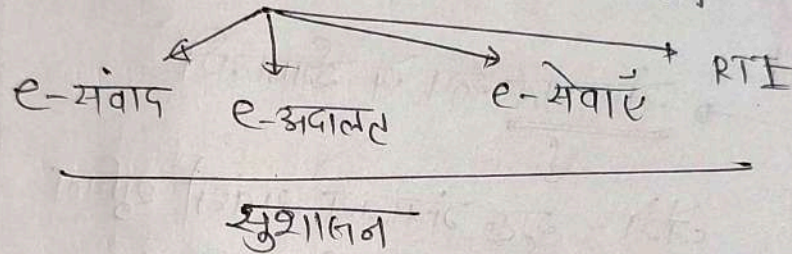 e-संवाद e-अदालत e-सेवाएँ RTI
सुशासन